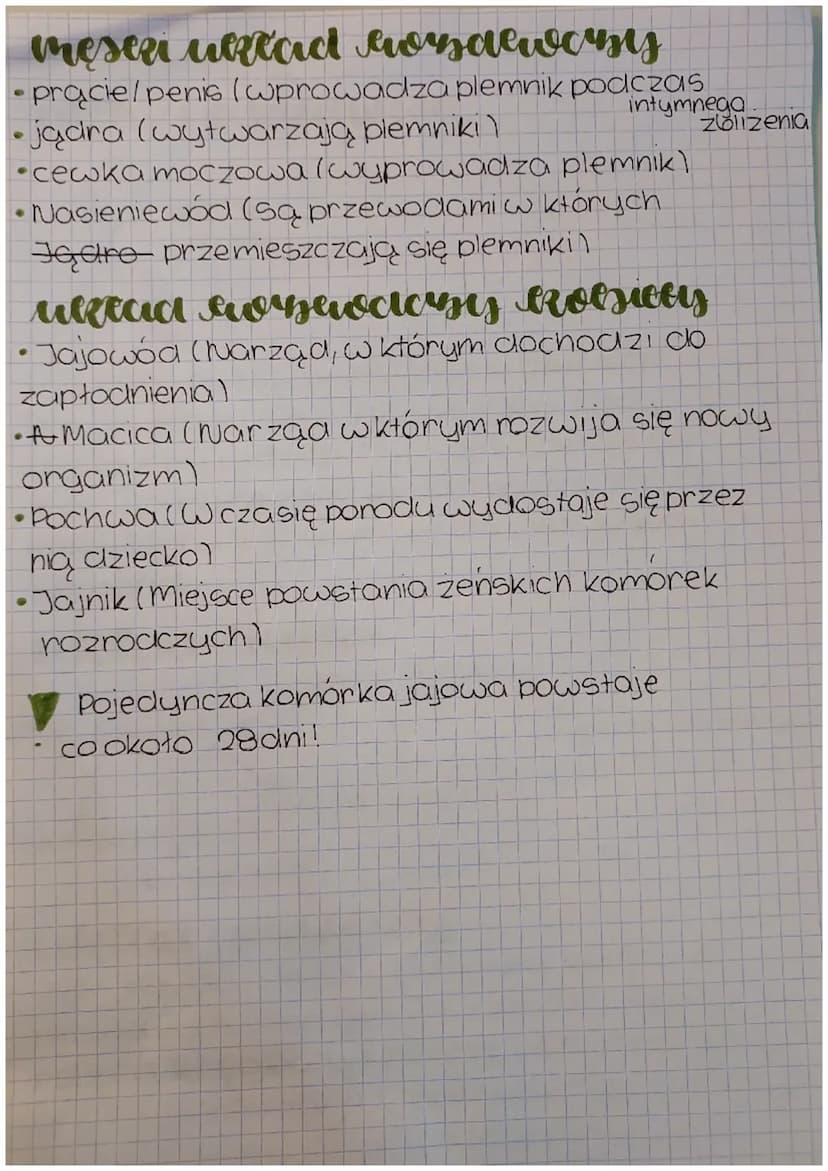 męski układ rozrodczy
• prącie/penis (wprowadza plemnik podczas
intymnego
zbliżenia
• jądra (wytwarzają plemniki)
• cewka moczowa (wyprowadza plemnik)
• Nasieniewód (są przewodami w których
Jądro przemieszczają się plemniki)
układ
• Jajowód (Narząd, w którym dochodzi do
zapłodnienia)
• A Macica (Narząd w którym rozwija się nowy
organizm)
• Pochwa (W czasię porodu wydostaje się przez
nią dziecko)
• Jajnik (Miejsce powstania żeńskich komórek
rozrodczych)
Pojedyncza komórka jajowa powstaje
co około 28 dni!